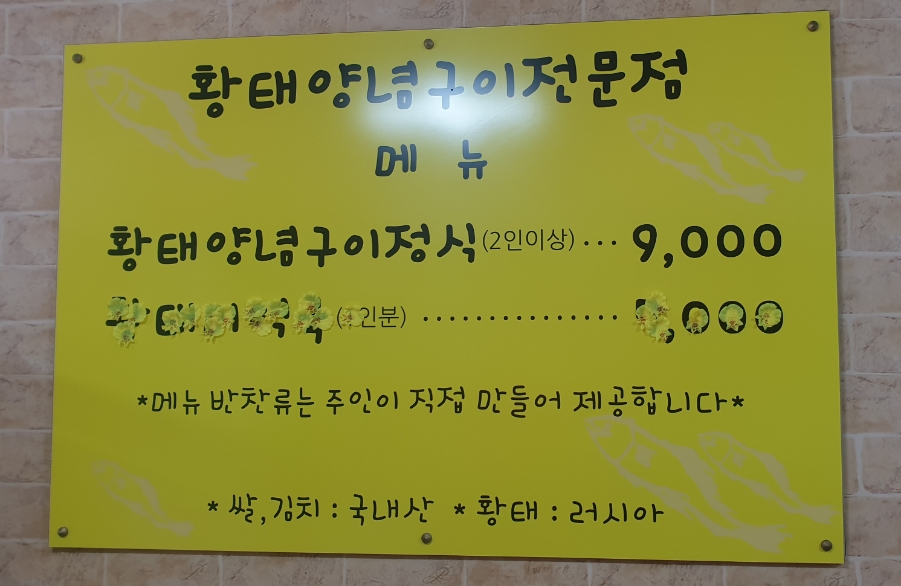 황태양념구이전문점
메 뉴
황태양념구이정식(2인이상)··· 9,000
인분) ···············
*메뉴 반찬류는 주인이 직접 만들어 제공합니다*
*쌀,김치 : 국내산 *황태 : 러시아